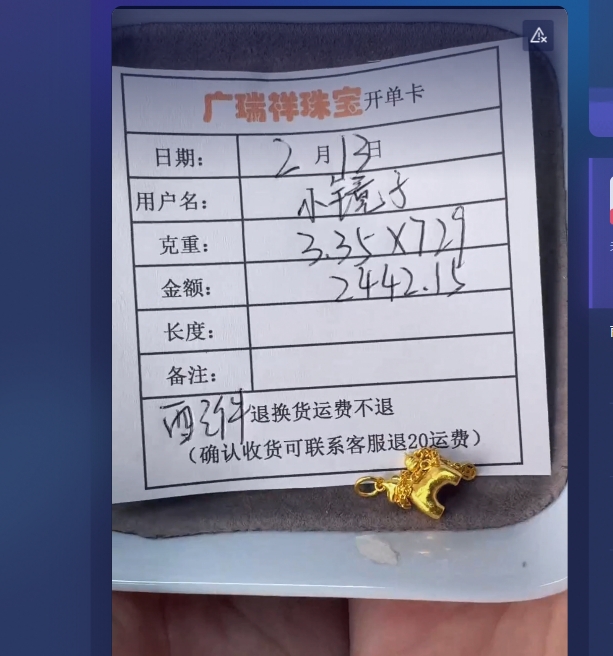 广瑞祥珠宝开单卡
日期： 2月13日
用户名： 小镜子
克重： 3.35X729
金额： 2442.15
长度：
备注：
退换货运费不退
（确认收货可联系客服退20运费）